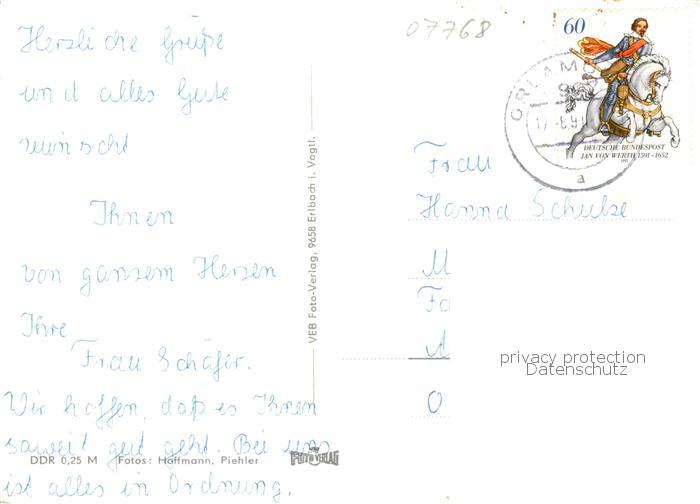 Herzliche Grüße
und alles Gute
wünscht
Ihnen
von ganzem Herzen
Ihre
Frau Schäfer.
Wir hoffen, daß es Ihnen
soweit gut geht. Bei uns
ist alles in Ordnung.
DDR 0,25 M Fotos: Hoffmann, Piehler
FOTO VERLAG
VEB Foto-Verlag, 9658 Erlbach i. Vogtl.
07768
60
DEUTSCHE BUNDESPOST
JAN VON WERTH 1591-1652
1991
ORLAM
a
Frau
Hanna Schulze
M
Fo
A
O
privacy protection
Datenschutz